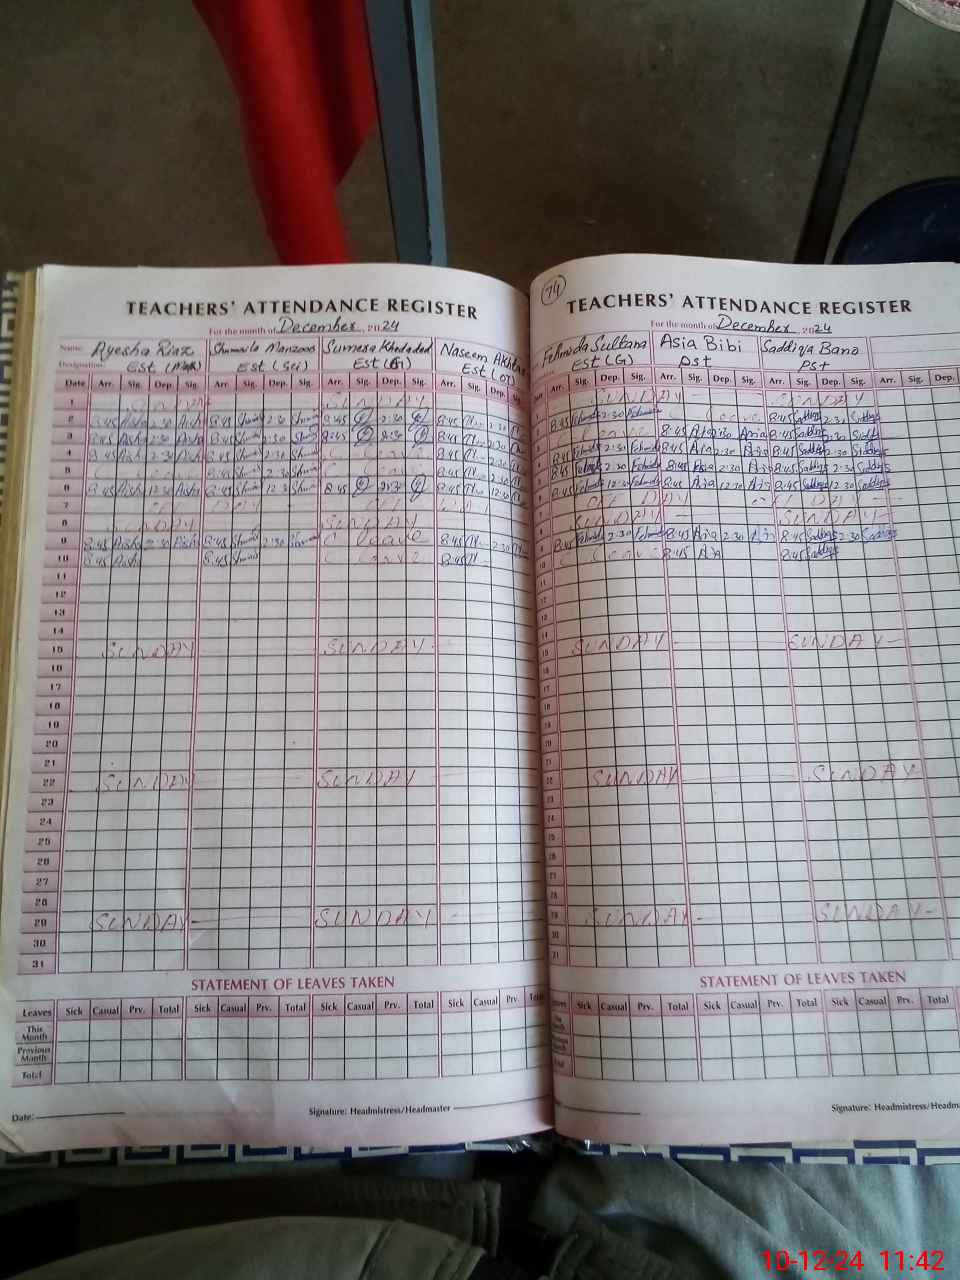 TEACHERS' ATTENDANCE REGISTER
For the month of December, 2024
Name: Ayesha Riaz Shumaila Manzoor Sumera Khodadad Naseem Akhtar
Designation: Est Est (Sci) Est Est (OT)
Date Arr. Sig. Dep. Sig. Arr. Sig. Dep. Sig. Arr. Sig. Dep. Sig. Arr. Sig. Dep. Sig.
1 SUNDAY
2 8:45 Aisha 2:30 Aisha 8:45 2:30 8:45 2:30 8:45 2:30
3 8:45 Aisha 2:30 Aisha 8:45 2:30 8:45 2:30 8:45 2:30
4 8:45 Aisha 2:30 Aisha 8:45 2:30 8:45 2:30
5 8:45 2:30 8:45 2:30
6 8:45 Aisha 12:30 Aisha 8:45 12:3 8:45 8:45 12:30
7 OFF DAY
8 SUNDAY SUNDAY
9 8:45 Aisha 2:30 Aisha 8:45 2:30 C leave 8:45 2:30
10 8:45 Aisha 8:45 C leave 8:45
11
12
13
14
15 SUNDAY SUNDAY
16
17
18
19
20
21
22 SUNDAY SUNDAY
23
24
25
26
27
28
29 SUNDAY SUNDAY
30
31
STATEMENT OF LEAVES TAKEN
Leaves Sick Casual Prv. Total Sick Casual Prv. Total Sick Casual Prv. Total Sick Casual Prv. Total
This Month
Previous Month
Total
Date: Signature: Headmistress/Headmaster
74
TEACHERS' ATTENDANCE REGISTER
For the month of December, 2024
Fehmida Sultana Asia Bibi Saddiqa Bano
Est (G) Pst PSt
Date Arr. Sig. Dep. Sig. Arr. Sig. Dep. Sig. Arr. Sig. Dep. Sig. Arr. Sig. Dep.
1 SUNDAY SUNDAY
2 8:45 2:30 C leave 8:45 2:30
3 C leave 8:45 Asia 2:30 Asia 8:45 2:30
4 8:45 2:30 8:45 Asia 2:30 Asia 8:45 2:30
5 8:45 2:30 8:45 Asia 2:30 Asia 8:45 2:30
6 8:45 12:30 8:45 Asia 12:30 Asia 8:45 12:30
7 OFF DAY OFF DAY
8 SUNDAY SUNDAY
9 8:45 2:30 8:45 Asia 2:30 Asia 8:45 2:30
10 C leave 8:45 Asia 8:45
11
12
13
14
15 SUNDAY SUNDAY
16
17
18
19
20
21
22 SUNDAY SUNDAY
23
24
25
26
27
28
29 SUNDAY SUNDAY
30
31
STATEMENT OF LEAVES TAKEN
Sick Casual Prv. Total Sick Casual Prv. Total Sick Casual Prv. Total
Signature: Headmistress/Headma
10-12-24 11:42